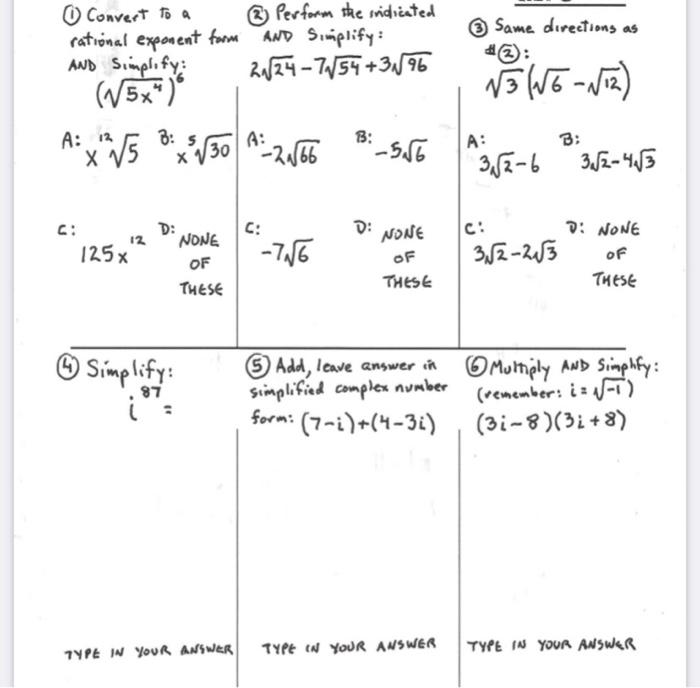 ① Convert to a
rational exponent form
AND Simplify:
(√5x⁴)⁶
A: x¹²√5 B: x ⁵√30
C: 125x¹² D: NONE
OF
THESE
② Perform the indicated
AND Simplify:
2√24 - 7√54 + 3√96
A: -2√66 B: -5√6
C: -7√6 D: NONE
OF
THESE
③ Same directions as
#②:
√3(√6 - √12)
A: 3√2 - 6 B: 3√2 - 4√3
C: 3√2 - 2√3 D: NONE
OF
THESE
④ Simplify:
i⁸⁷ =
TYPE IN YOUR ANSWER
⑤ Add, leave answer in
simplified complex number
form: (7-i)+(4-3i)
TYPE IN YOUR ANSWER
⑥ Multiply AND Simplify:
(remember: i = √-1)
(3i-8)(3i+8)
TYPE IN YOUR ANSWER